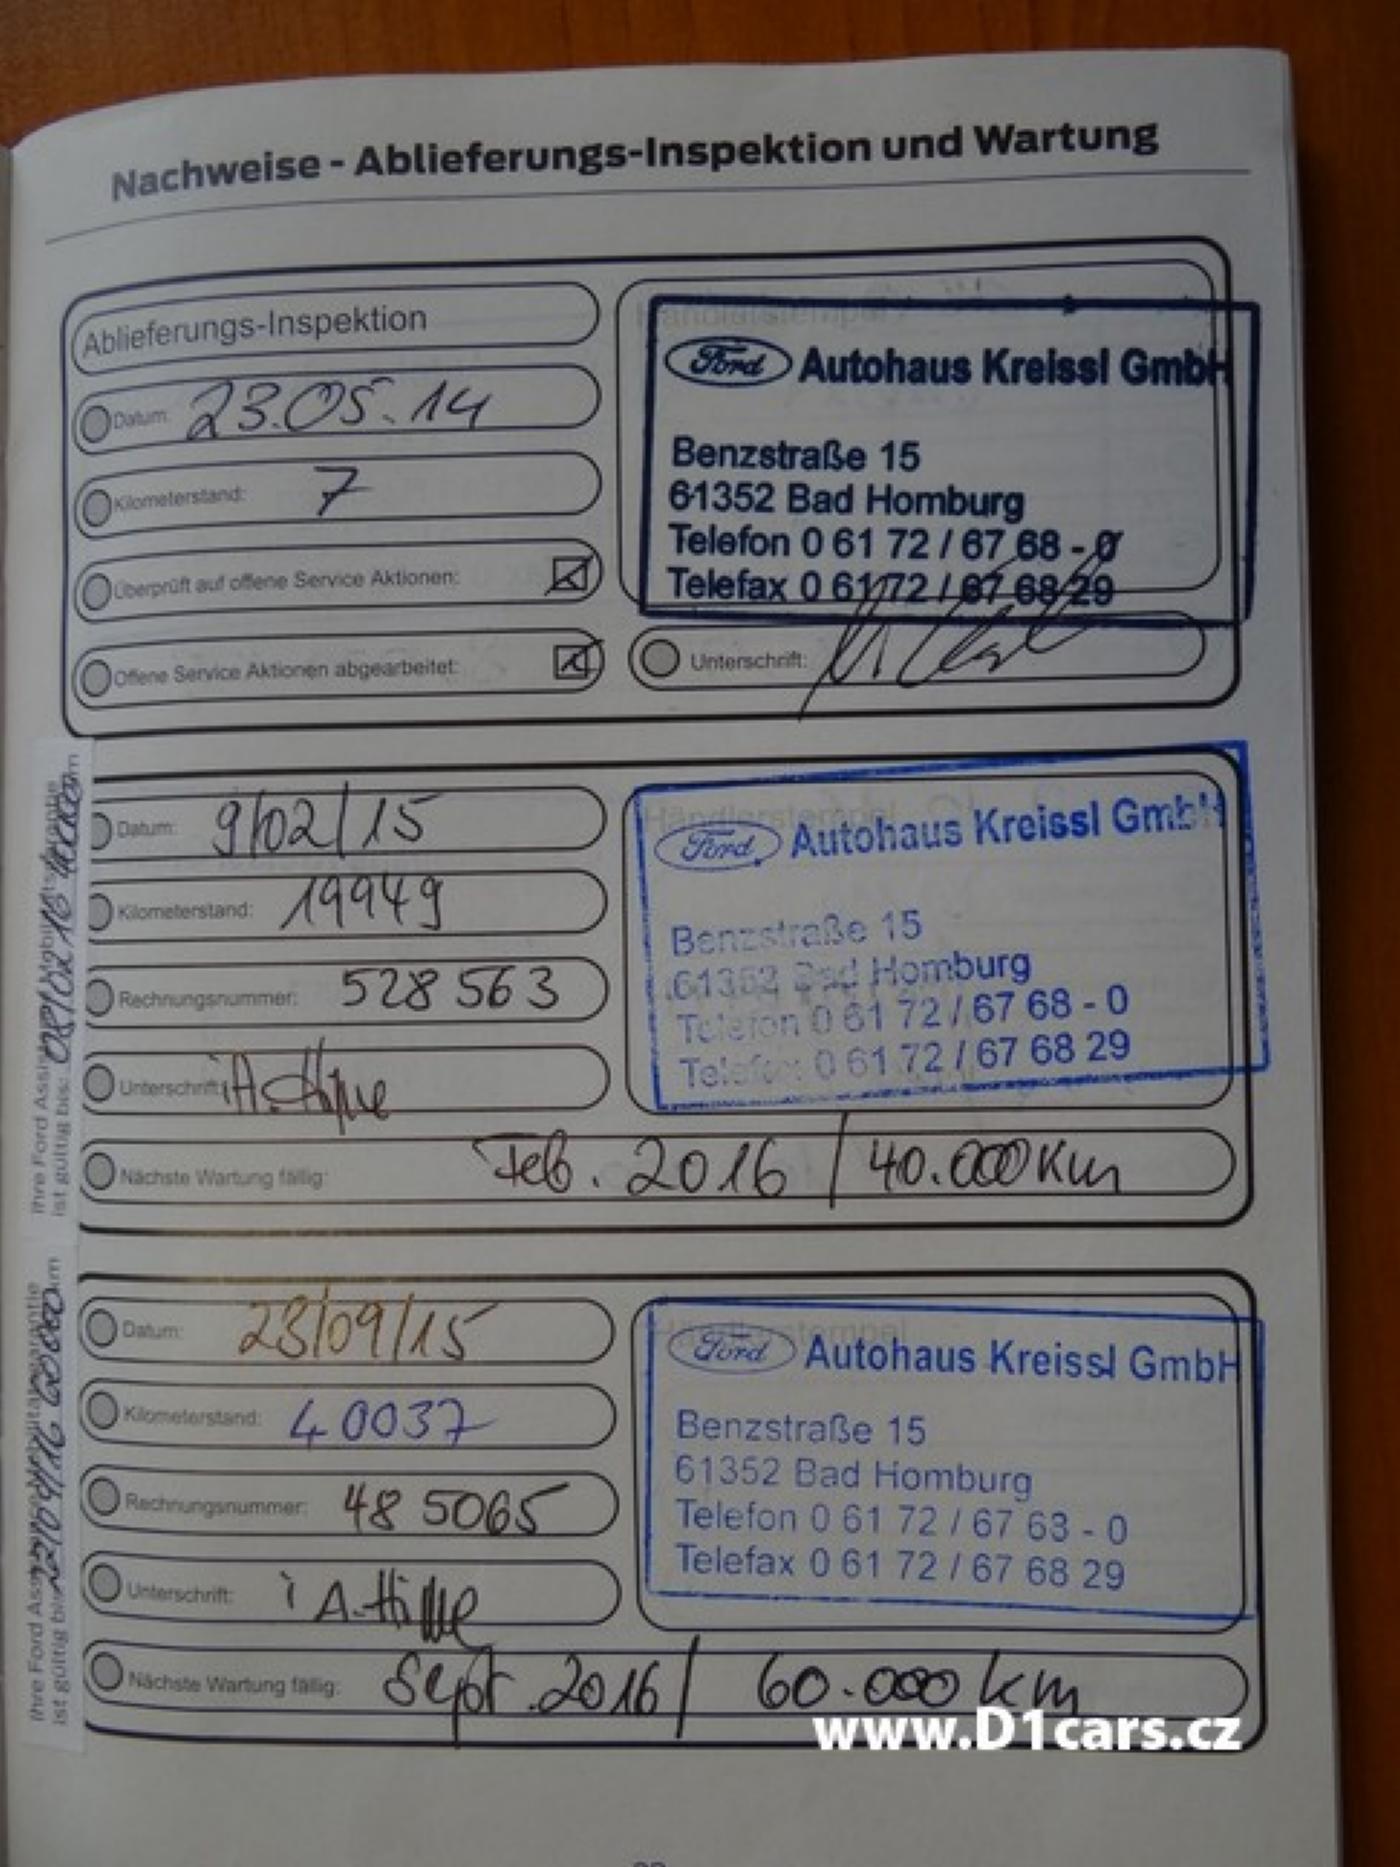 Nachweise - Ablieferungs-Inspektion und Wartung
Ablieferungs-Inspektion
Datum: 23.05.14
Kilometerstand: 7
Überprüft auf offene Service Aktionen:
Offene Service Aktionen abgearbeitet:
Händlerstempel
Ford Autohaus Kreissl GmbH
Benzstraße 15
61352 Bad Homburg
Telefon 0 61 72 / 67 68 - 0
Telefax 0 61 72 / 67 68 29
Unterschrift:
Datum: 9/02/15
Kilometerstand: 19949
Rechnungsnummer: 528 563
Unterschrift:
Händlerstempel
Ford Autohaus Kreissl GmbH
Benzstraße 15
61352 Bad Homburg
Telefon 0 61 72 / 67 68 - 0
Telefax 0 61 72 / 67 68 29
Nächste Wartung fällig: Feb. 2016 / 40.000 Km
Ihre Ford Assistance
ist gültig bis: 08/02/16
Datum: 23/09/15
Kilometerstand: 40037
Rechnungsnummer: 48 5065
Unterschrift: i A.
Händlerstempel
Ford Autohaus Kreissl GmbH
Benzstraße 15
61352 Bad Homburg
Telefon 0 61 72 / 67 68 - 0
Telefax 0 61 72 / 67 68 29
Nächste Wartung fällig: Sept. 2016 / 60.000 km
Ihre Ford
ist gültig bis: 22/09/16 60000 km
www.D1cars.cz